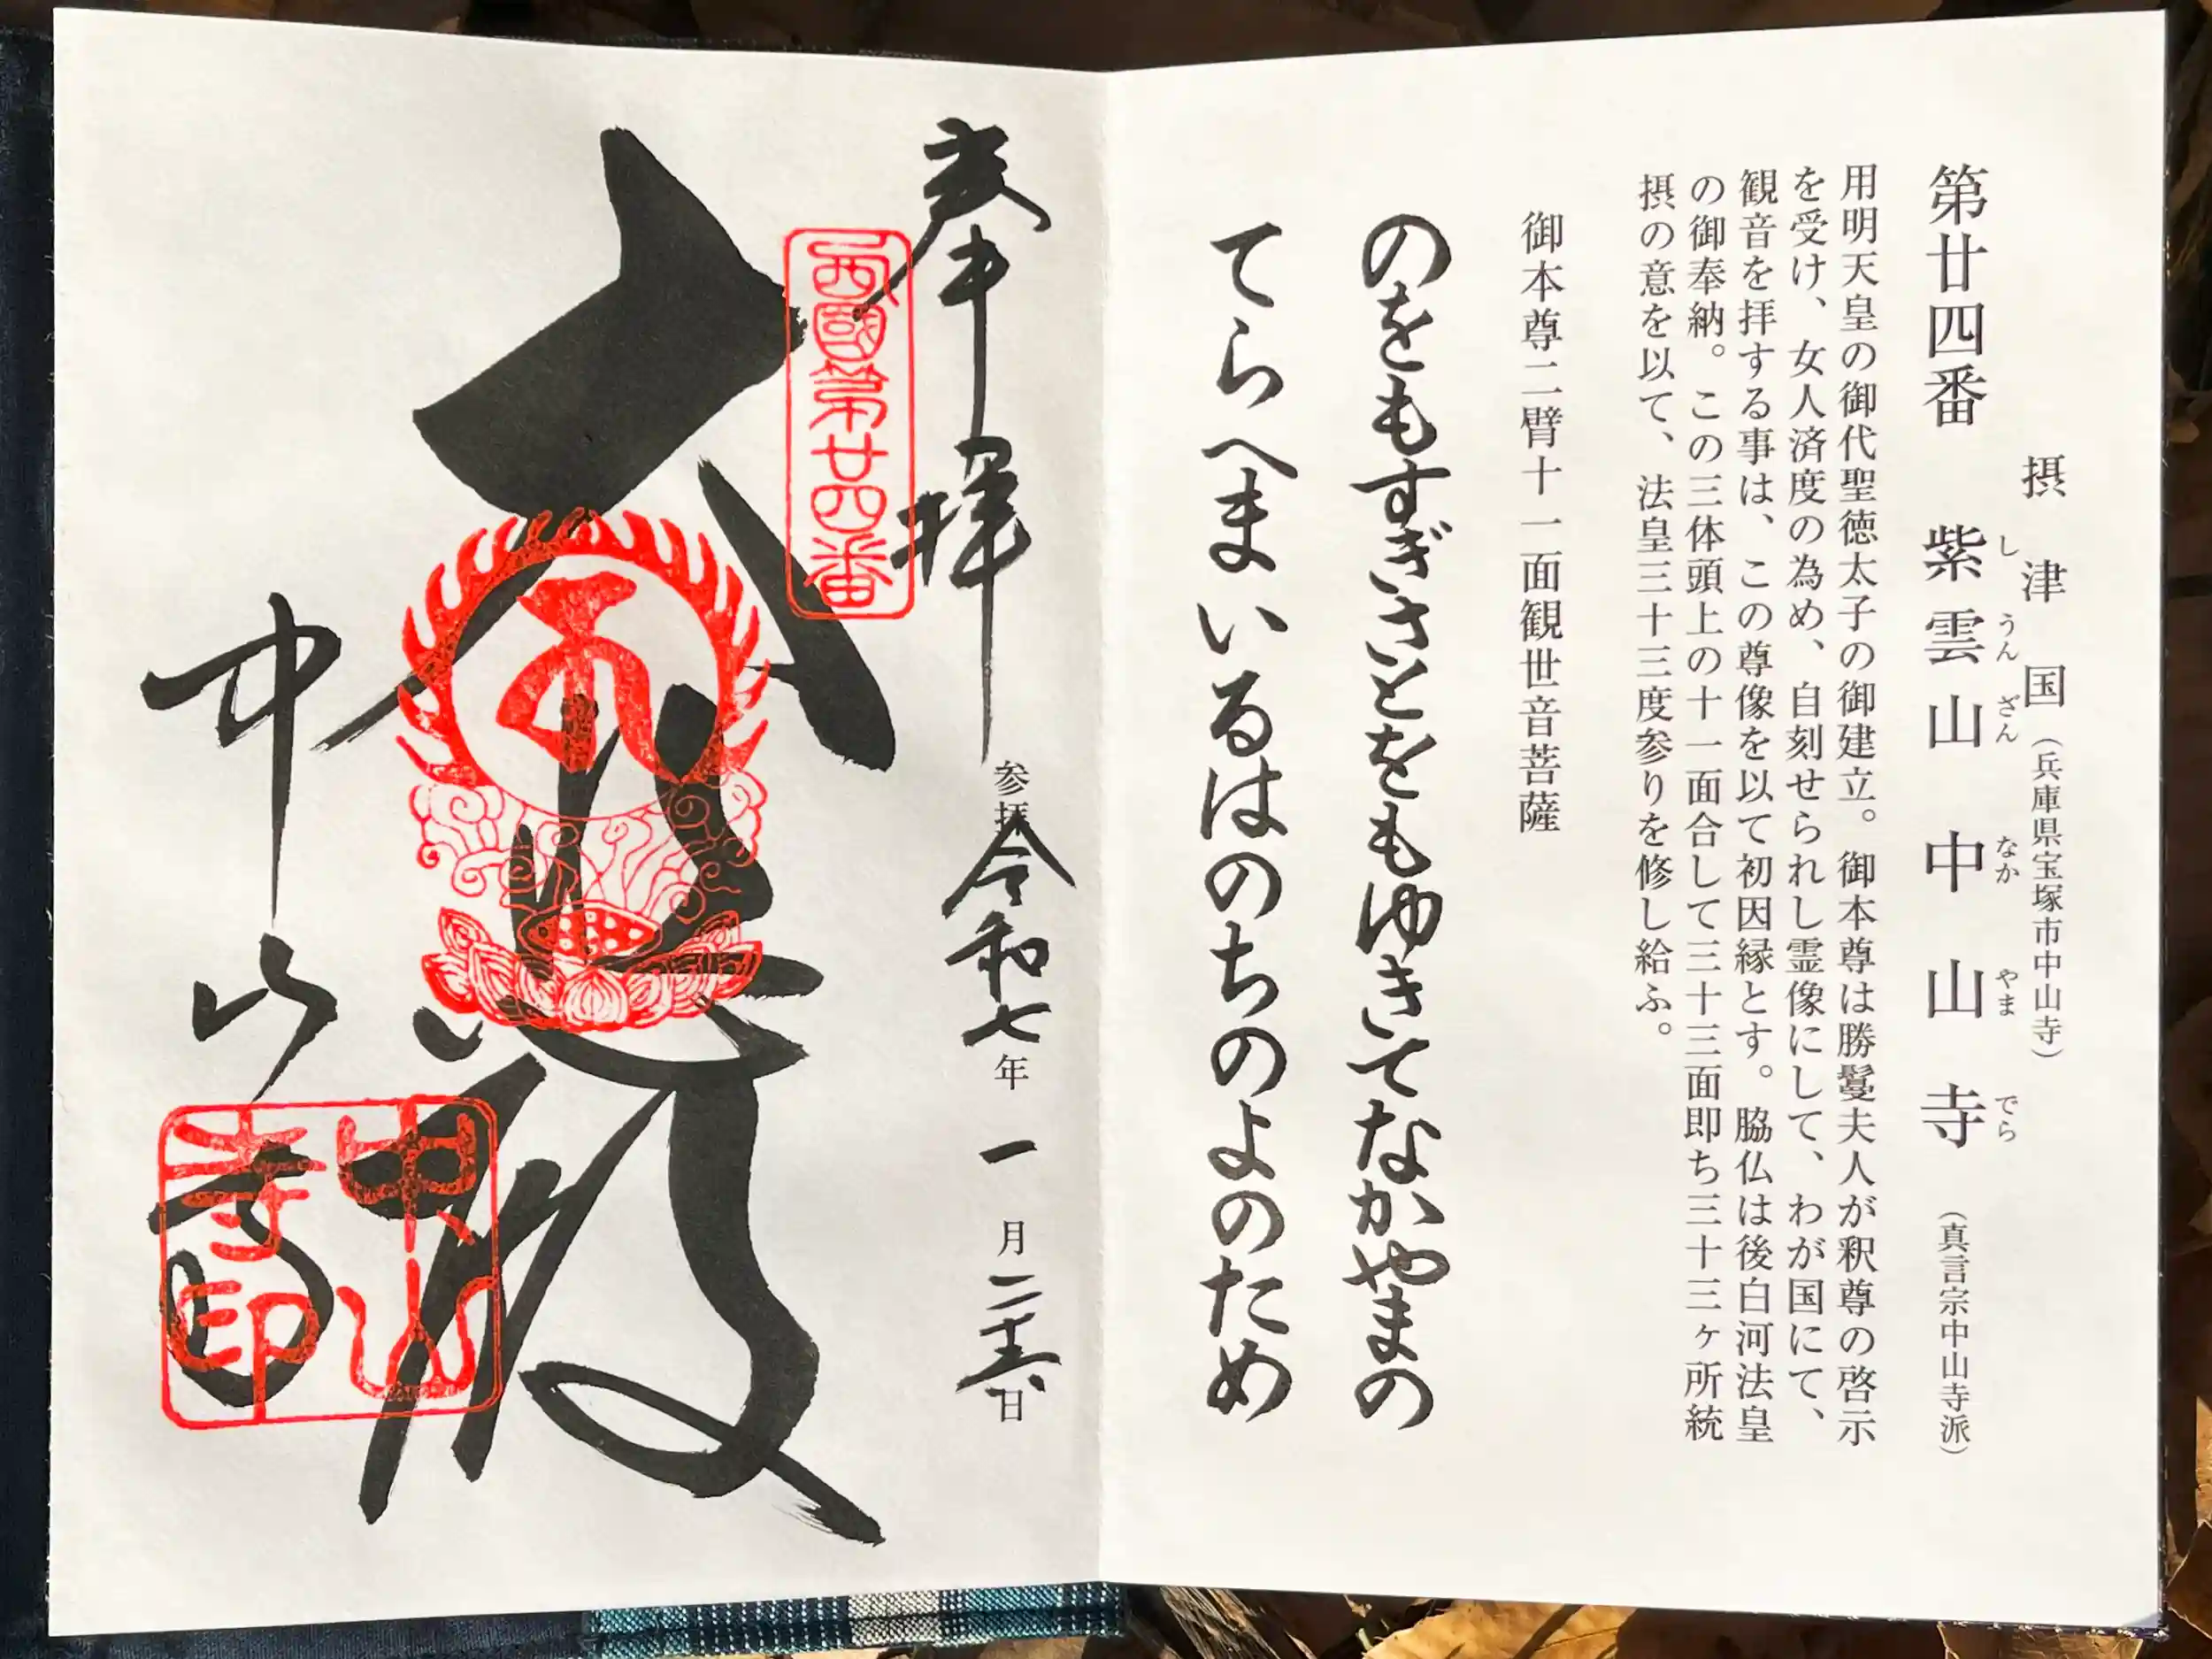 摂津国（兵庫県宝塚市中山寺）
第廿四番 紫雲山 中山寺（真言宗中山寺派）
しうんざん なかやまでら
用明天皇の御代聖徳太子の御建立。御本尊は勝鬘夫人が釈尊の啓示
を受け、女人済度の為め、自刻せられし霊像にして、わが国にて、
観音を拝する事は、この尊像を以て初因縁とす。脇仏は後白河法皇
の御奉納。この三体頭上の十一面合して三十三面即ち三十三ヶ所統
摂の意を以て、法皇三十三度参りを修し給ふ。
御本尊二臂十一面観世音菩薩
のをもすぎさとをもゆきてなかやまの
てらへまいるはのちのよのため
奉拝
参拝 令和七年 一月 二十六日
西國第廿四番
大悲殿
中山寺
中山寺印